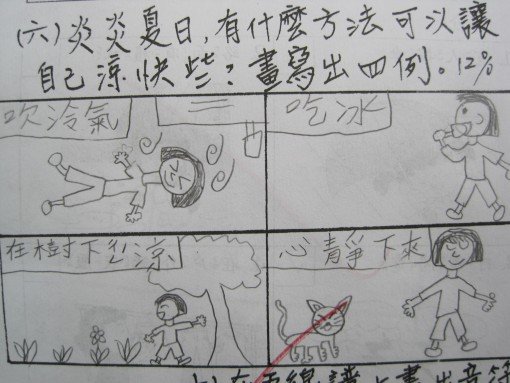 (六)炎炎夏日,有什麼方法可以讓
自己涼快些?畫寫出四例。12%
吹冷氣
吃冰
在樹下乘涼
心靜下來